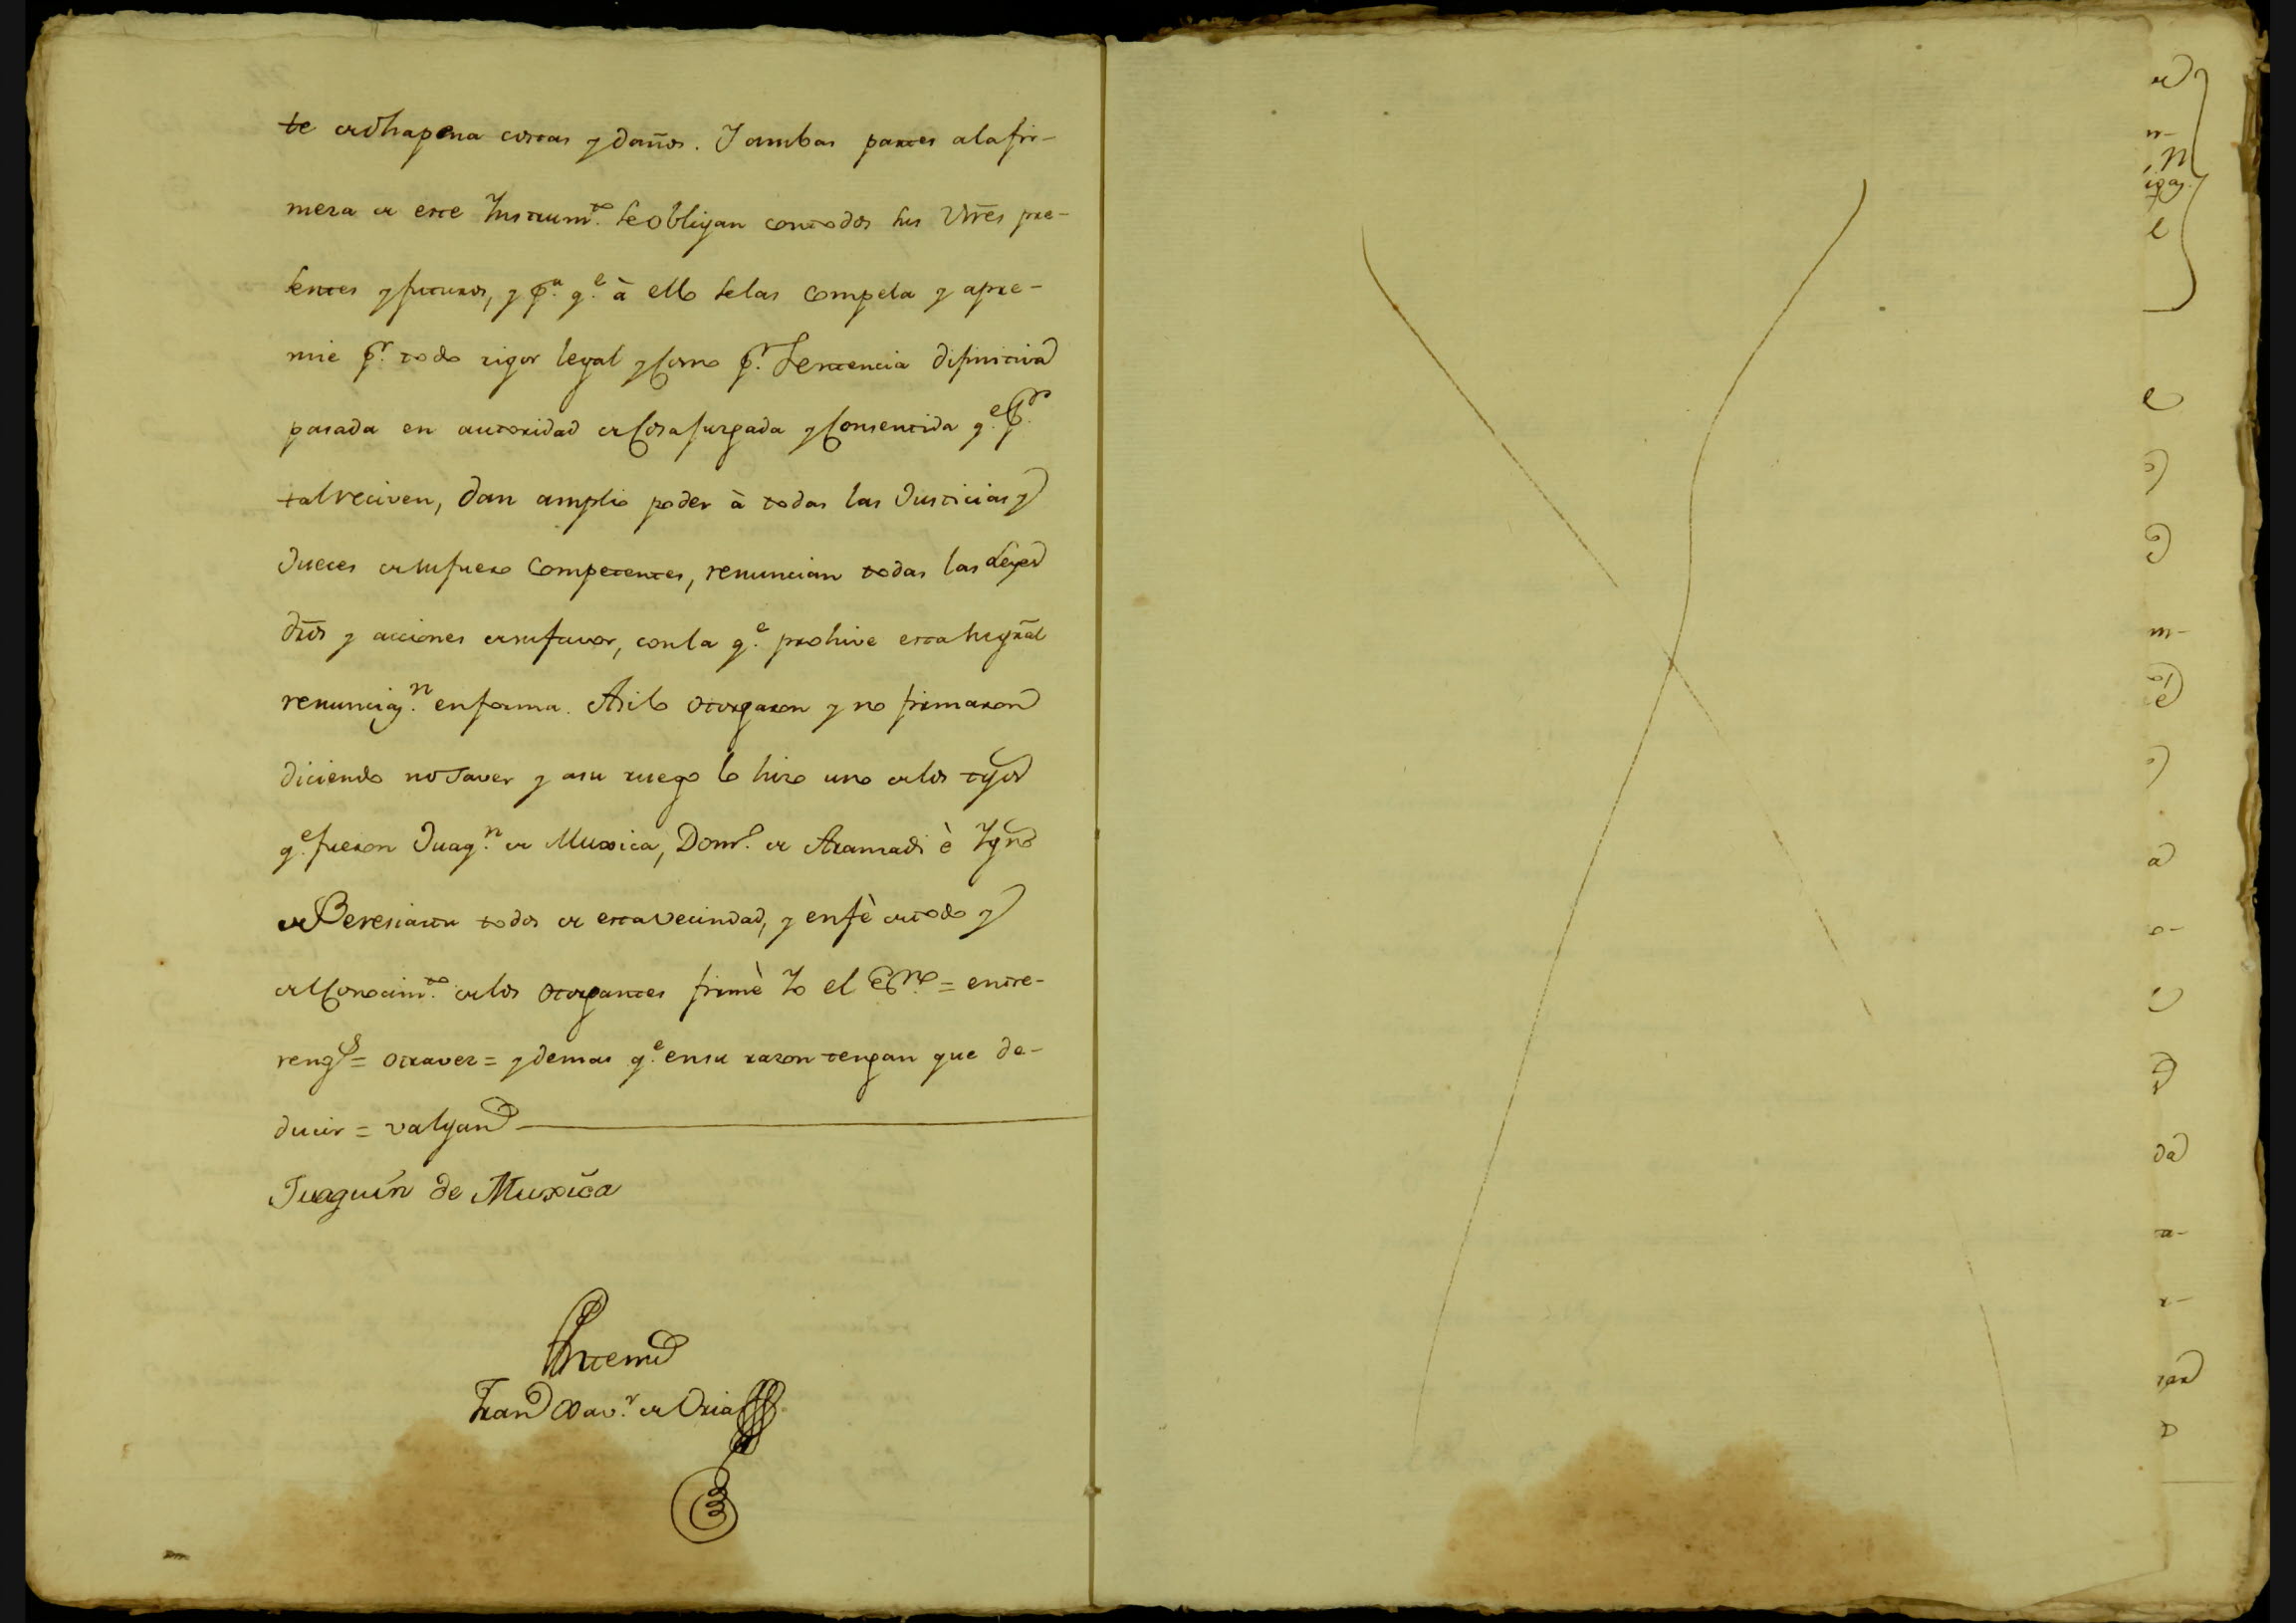 te de dha pena costas y daños. Y ambas partes a la fir-
meza de este Instrum.to se obligan con todos sus Vnes pre-
sentes y futuros, y p.a q.e à ello se las compela y apre-
mie p.r todo rigor legal y como p.r Sentencia difinitiva
pasada en autoridad de Cosa juzgada y Consentida q.e p.r
tal reciven, dan amplio poder à todas las Justicias y
Jueces de su fuero Competentes, renuncian todas las Leyes
dros y acciones de su favor, con la q.e prohive esta Gral
renunciaz.n en forma. Asi lo otorgaron y no firmaron
diciendo no saver y a su ruego lo hizo uno de los tgos
q.e fueron Juaq.n de Muxica, Dom.o de Aramadi è Ygn.o
de Beresiartu todos de esta vecindad, y en fè de todo y
del Conocim.to de los otorgantes firmè Yo el Es.no = entre-
reng.s = otra vez = y demas q.e en su razon tengan que de-
ducir = valgan
Juaquin de Muxica
Ante mi
Fran.co Xav.r de Oria